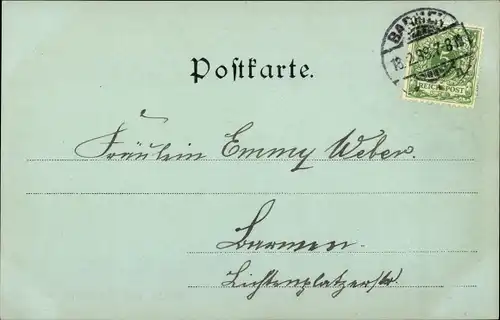 BARMEN
13.2.98. 7-8 N.
REICHSPOST
Postkarte.
Fräulein Emmy Weber.
Barmen.
Lichtenplatzerstr.